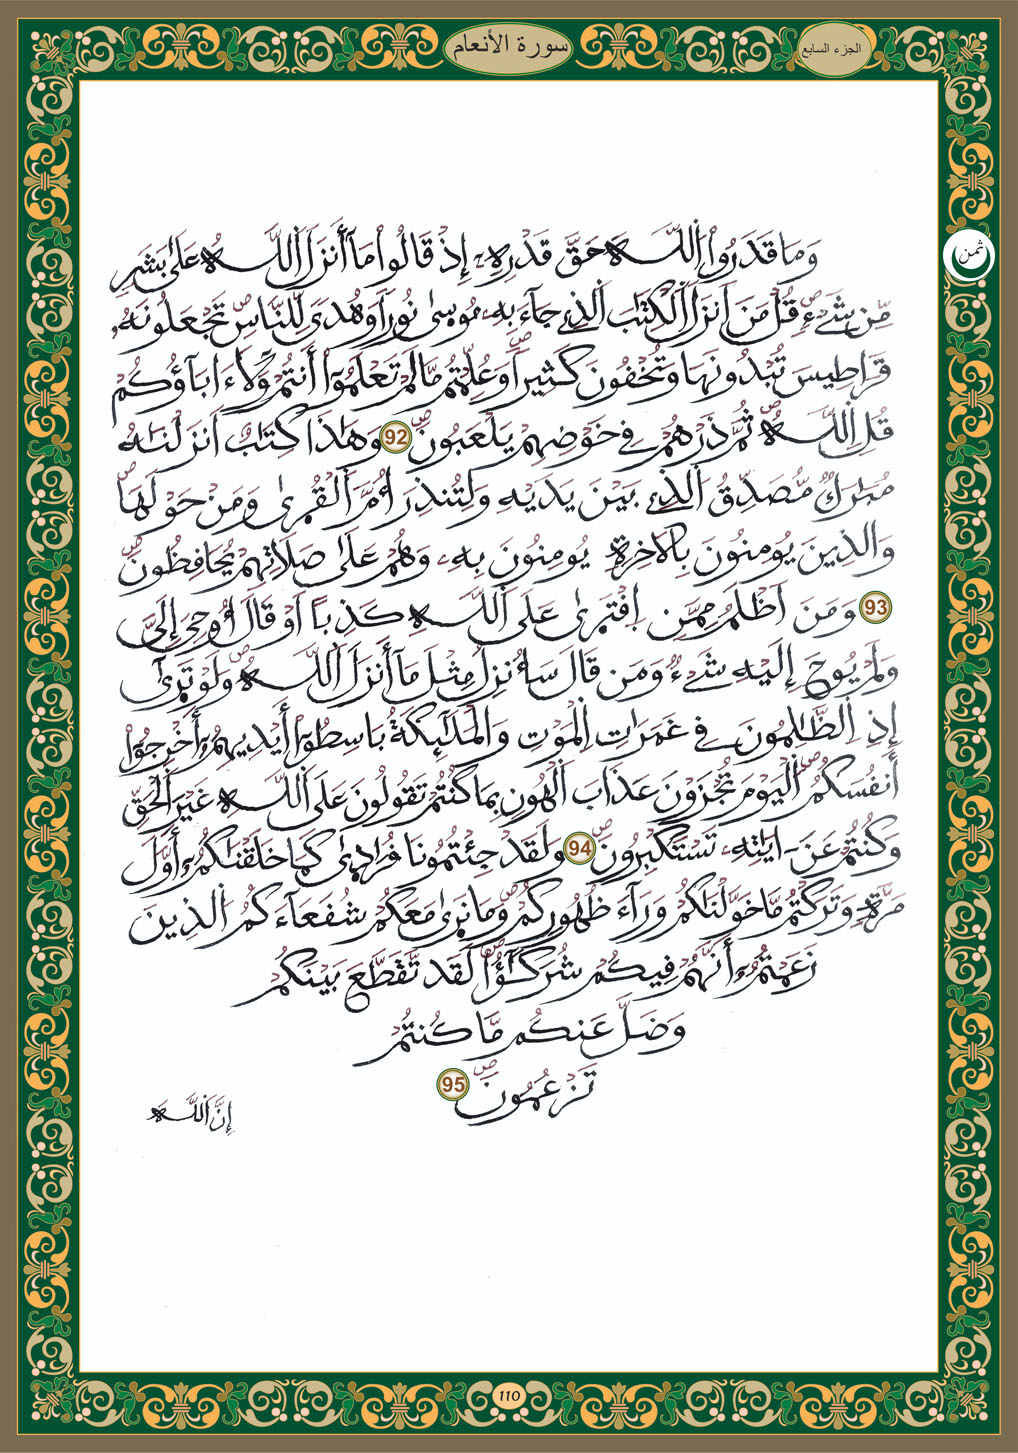 سورة الأنعام
الجزء السابع
ثمن
وَمَا قَدَرُواْ اُللَّهَ حَقَّ قَدْرِهِۦٓ إِذْ قَالُواْ مَآ أَنزَلَ اَللَّهُ عَلَىٰ بَشَرٖ
مِّن شَےْءٖۖ قُلْ مَنَ اَنزَلَ اَلْكِتَٰبَ اَلذِے جَآءَ بِهِۦ مُوس۪ىٰ نُوراٗ وَهُدىٗ لِّلنَّاسِۖ تَجْعَلُونَهُۥ
قَرَاطِيسَ تُبْدُونَهَا وَتُخْفُونَ كَثِيراٗۖ وَعُلِّمْتُم مَّا لَمْ تَعْلَمُوٓاْ أَنتُمْ وَلَآ ءَابَآؤُكُمْ
قُلِ اِللَّهُۖ ثُمَّ ذَرْهُمْ فِے خَوْضِهِمْ يَلْعَبُونَۖ 92 وَهَٰذَا كِتَٰبٌ اَنزَلْنَٰهُ
مُبَٰرَكٞ مُّصَدِّقُ اُلذِے بَيْنَ يَدَيْهِ وَلِتُنذِرَ أُمَّ اَلْقُر۪ىٰ وَمَنْ حَوْلَهَاۖ
وَالذِينَ يُومِنُونَ بِالَاخِرَةِ يُومِنُونَ بِهِۦ وَهُمْ عَلَىٰ صَلَاتِهِمْ يُحَافِظُونَۖ
93 وَمَنَ اَظْلَمُ مِمَّنِ اِفْتَر۪ىٰ عَلَى اَللَّهِ كَذِباً اَوْ قَالَ أُوحِيَ إِلَيَّ
وَلَمْ يُوحَ إِلَيْهِ شَےْءٞ وَمَن قَالَ سَأُنزِلُ مِثْلَ مَآ أَنزَلَ اَللَّهُۖ وَلَوْ تَر۪ىٰٓ
إِذِ اِلظَّٰلِمُونَ فِے غَمَرَٰتِ اِلْمَوْتِ وَالْمَلَٰٓئِكَةُ بَاسِطُوٓاْ أَيْدِيهِمُۥٓ أَخْرِجُوٓاْ
أَنفُسَكُمُۖ اُلْيَوْمَ تُجْزَوْنَ عَذَابَ اَلْهُونِ بِمَا كُنتُمْ تَقُولُونَ عَلَى اَللَّهِ غَيْرَ اَلْحَقِّ
وَكُنتُمْ عَنَ اٰيَٰتِهِۦ تَسْتَكْبِرُونَۖ 94 وَلَقَدْ جِئْتُمُونَا فُرَٰد۪ىٰ كَمَا خَلَقْنَٰكُمُۥٓ أَوَّلَ
مَرَّةٖ وَتَرَكْتُم مَّا خَوَّلْنَٰكُمْ وَرَآءَ ظُهُورِكُمْۖ وَمَا نَر۪ىٰ مَعَكُمْ شُفَعَآءَكُمُ اُلذِينَ
زَعَمْتُمُۥٓ أَنَّهُمْ فِيكُمْ شُرَكَٰٓؤُاْۖ لَقَد تَّقَطَّعَ بَيْنَكُمْ
وَضَلَّ عَنكُم مَّا كُنتُمْ
تَزْعُمُونَۖ 95
إِنَّ اَللَّهَ
110